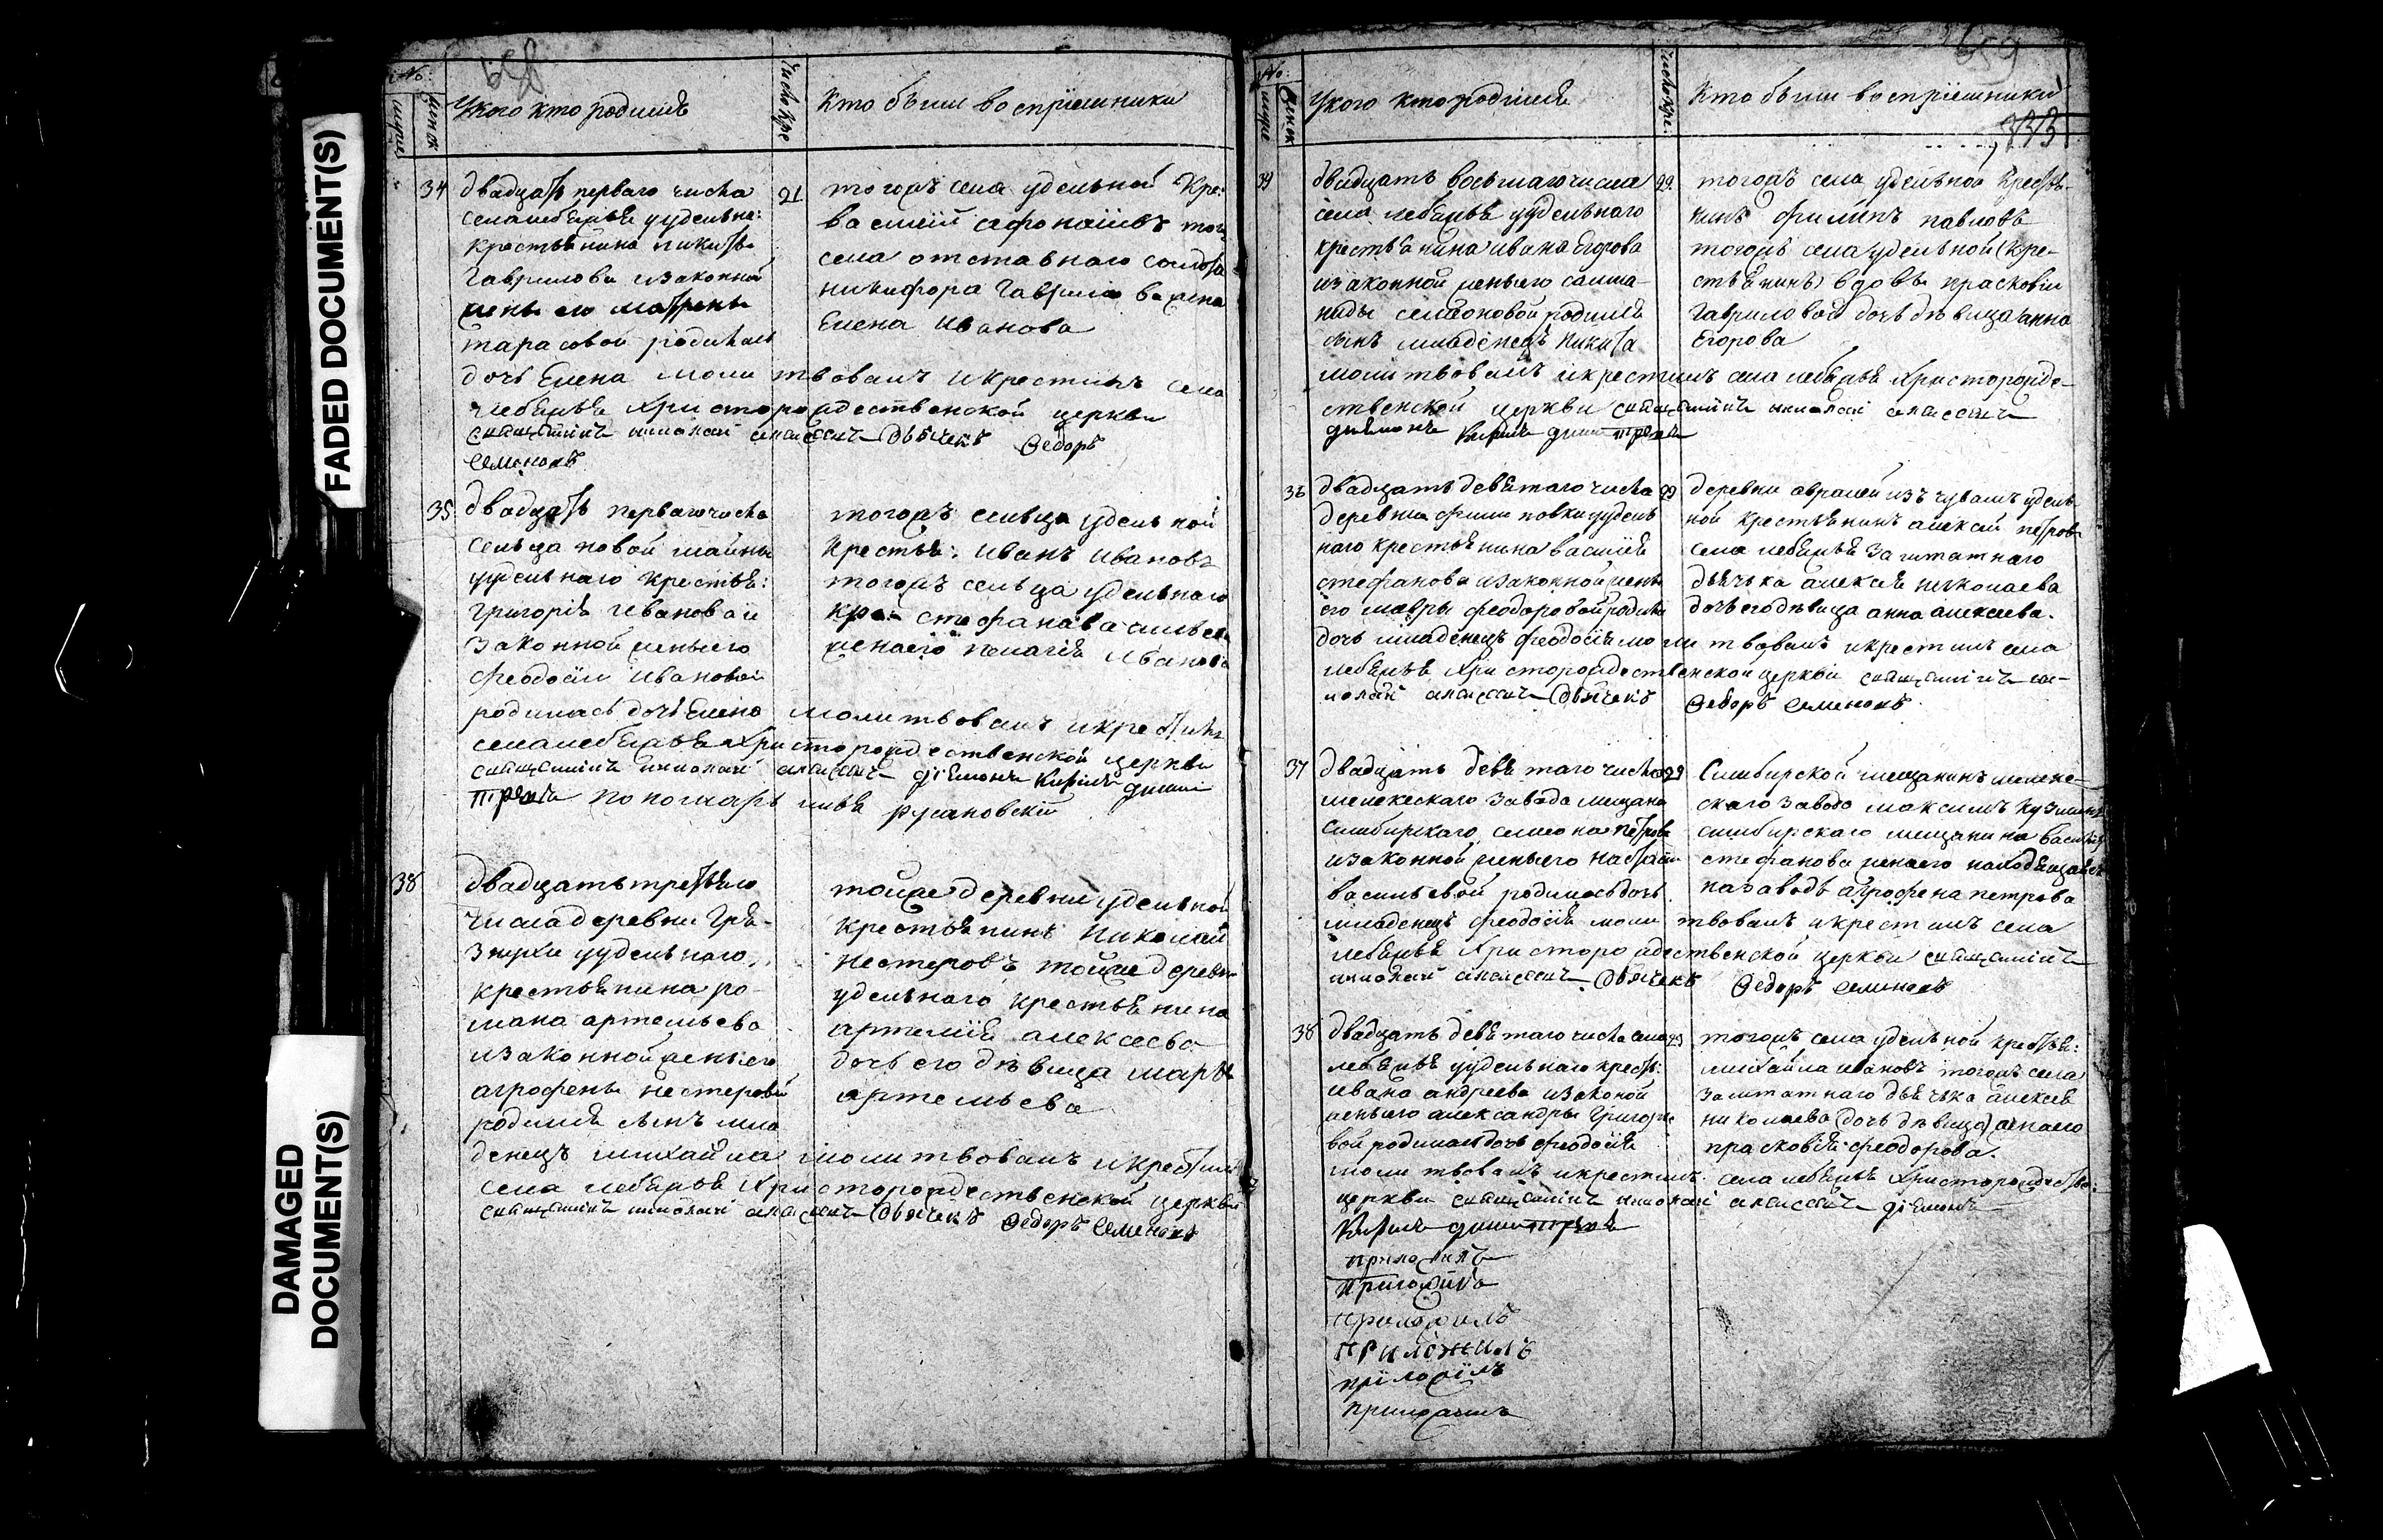 FADED DOCUMENT(S)
DAMAGED
DOCUMENT(S)
№:
У кого кто родился
Число кре
Кто были восприемники
34
двадцать перваго числа
села лебяжья у удельна:
крестьянина никиты
Гаврилова и законной
жены его матрены
тарасовой родилась
дочь Елена молитвовалъ и крестилъ села
лебяжья Христорождественской церкви
священникъ николай алексеевъ дьячекъ Ѳедоръ
Семеновъ
21
тогожъ села удельной Кре:
василий афонасиевъ того
села отставнаго солдата
никифора Гаврилова жена
Елена Иванова
35
двадцать перваго числа
сельца новой майны
у удельнаго крестья:
григория Иванова и
законной жены его
феодосии Ивановой
родилась дочь Елена молитвовалъ и крестилъ
села лебяжья Христорождественской церкви
священникъ николай алексеевъ діяконъ Кирилъ дими
треевъ пономарь илья русановскій
тогожъ сельца удельной
крестья: Иванъ Ивановъ
тогожъ сельца удельнаго
кре: стефана васильева
жена его пелагия Иванова
38
двадцать третьяго
числа деревни Гря-
знухи у удельнаго
крестьянина ро-
мана артемьева
и законной жены его
агрофены нестеровой
родился сынъ мла
денецъ михайла молитвовалъ и крестилъ
села лебяжья Христорождественской церкви
священникъ николай алексеевъ дьячекъ Ѳедоръ Семеновъ
тойже деревни удельной
крестьянинъ Николай
нестеровъ тойже деревни
удельнаго крестьянина
артемия алексеева
дочь его дѣвица марья
артемьева
659
№:
У кого кто родился
Число кре.
Кто были восприемники
333
39
двадцать восьмаго числа
села лебяжья у удельнаго
крестьянина ивана Егорова
и законной жены его салма-
ниды семионовой родился
сынъ младенецъ никита
молитвовалъ и крестилъ села лебяжья Христорожде-
ственской церкви священникъ николай алексеевъ
діяконъ Кирилъ димитреевъ
29.
тогожъ села удельной крестья-
нинъ филипъ павловъ
тогожъ села удельной (кре-
стьянинъ) вдовы прасковии
Гавриловой дочь дѣвица анна
Егорова
36
двадцать девятаго числа
деревни филиповки у удель
наго крестьянина василия
стефанова и законной жены
его мавры феодоровой родилась
дочь младенецъ феодосия молитвовалъ и крестилъ села
лебяжья Христорождественской церкви священникъ ни-
колай алексеевъ дьячекъ Ѳедоръ Семеновъ
29
деревни авралей изъ чувашъ удель
ной крестьянинъ алексей петровъ
села лебяжья заштатнаго
дьячька алексея николаева
дочь его дѣвица анна алексеева.
37
двадцать девятаго числа
мелекескаго завода мещана
симбирскаго семиона петрова
и законной жены его натальи
васильевой родилась дочь
младенецъ феодосия молитвовалъ и крестилъ села
лебяжья Христорождественской церкви священникъ
николай алексеевъ дьячекъ Ѳедоръ Семеновъ
29
Симбирской мещанинъ мелеке-
скаго завода максимъ кузминъ
симбирскаго мещанина василия
стефанова жена его находящаяся
на заводѣ агрофена петрова
38
двадцать девятаго числа села
лебяжья у удельнаго кресть:
ивана андреева и законой
жены его александры Григорье
вой родилась дочь феодосия
молитвовалъ и крестилъ села лебяжья Христорождестве:
церкви священникъ николай алексеевъ діяконъ
Кирилъ димитреевъ
29
тогожъ села удельной крестья:
михайла ивановъ тогожъ села
заштатнаго дьячька алексея
николаева (дочь дѣвица) жена его
прасковия феодорова.
приложилъ
приложилъ
приложилъ
приложилъ
приложилъ
приложилъ